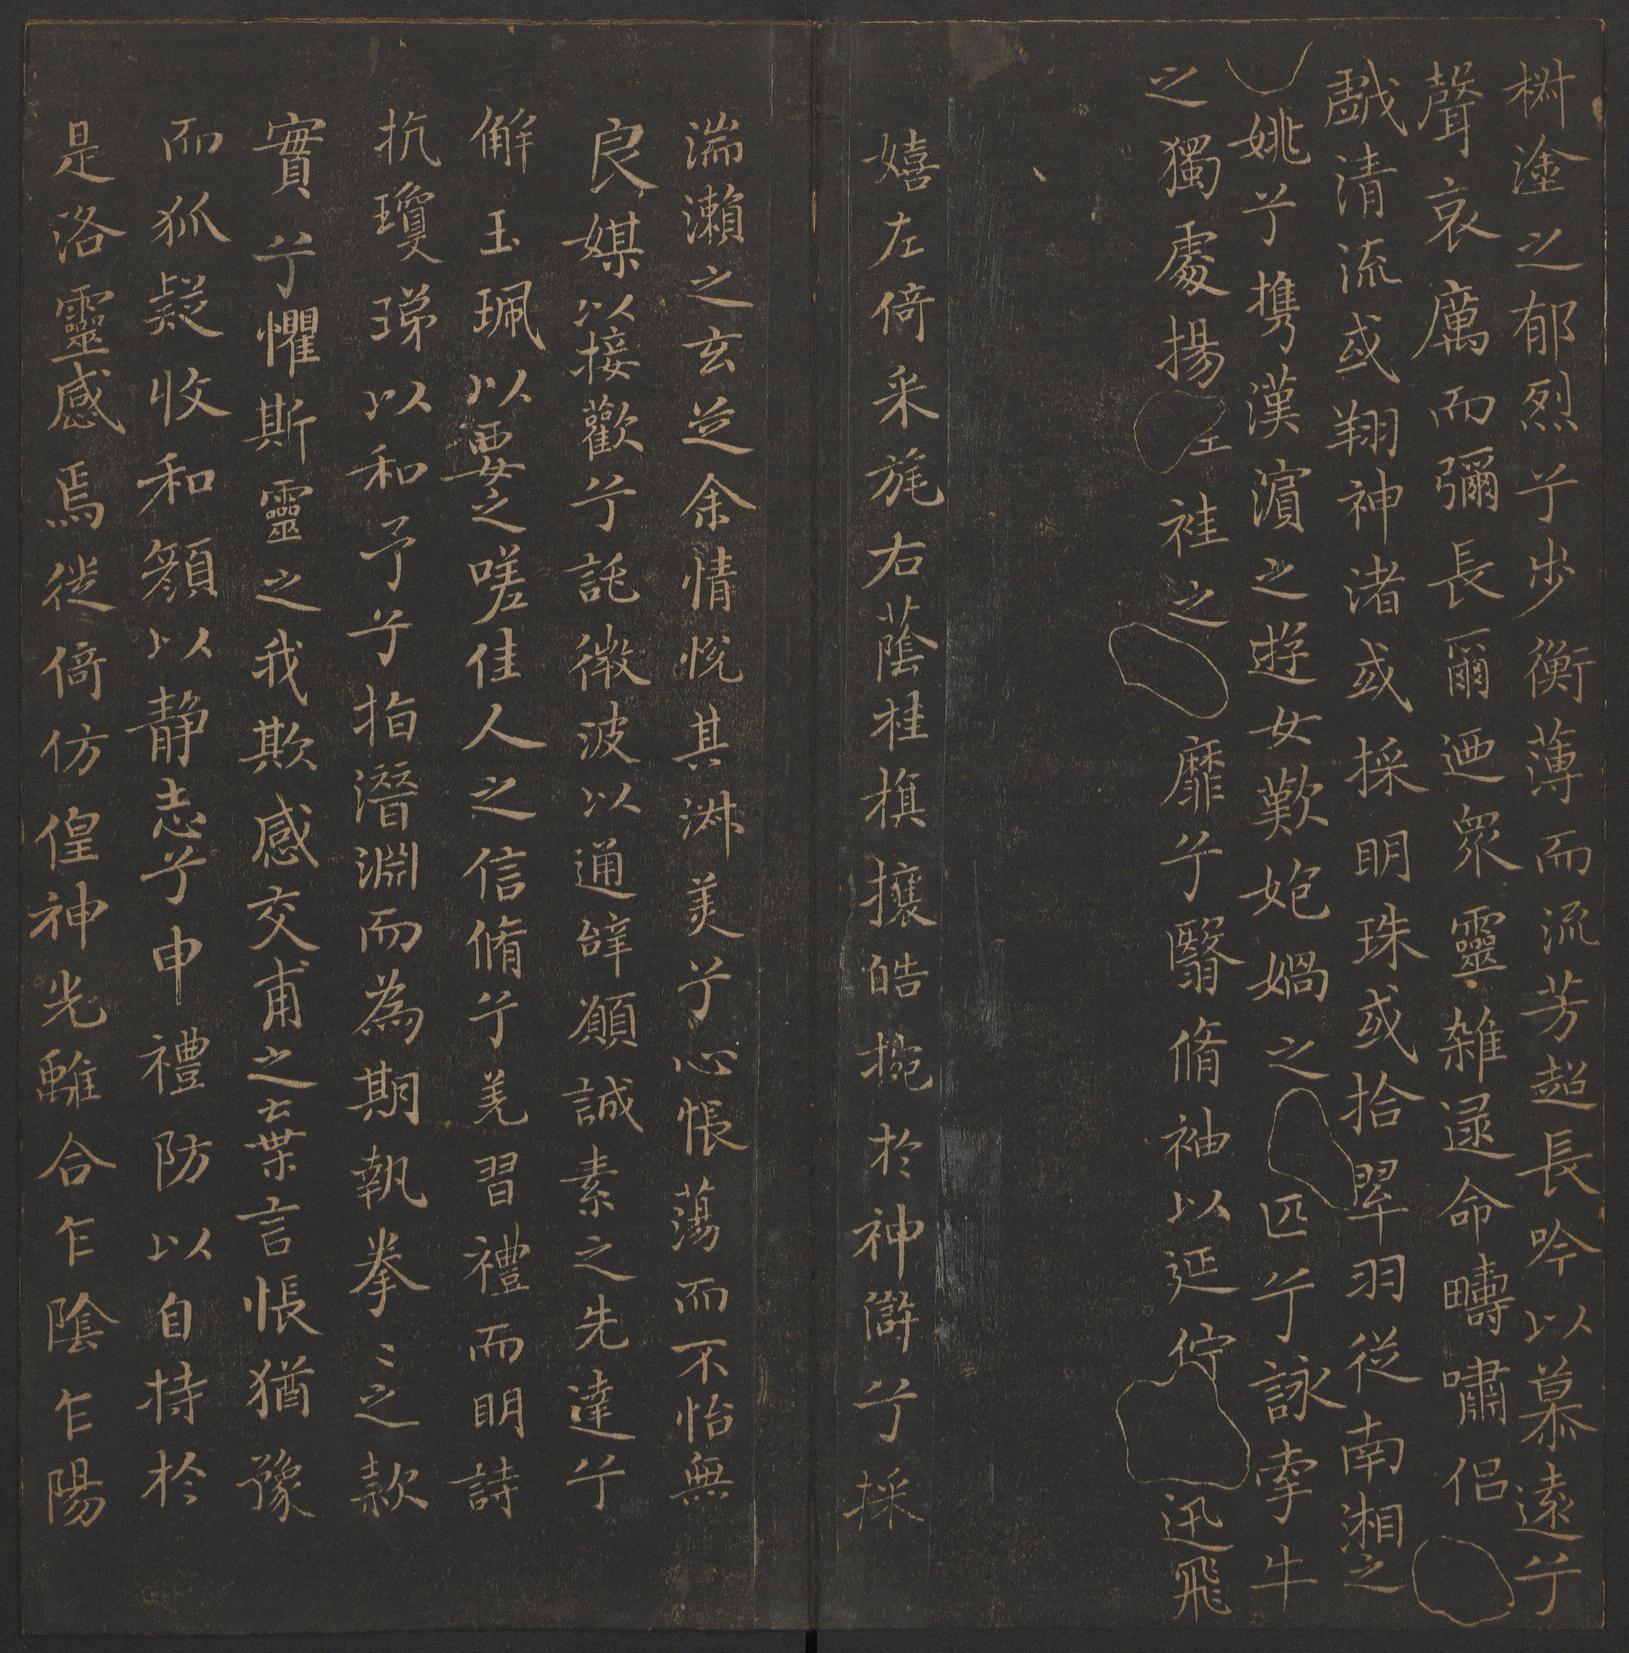 樹塗之郁烈兮步衡薄而流芳超長吟以慕遠兮
聲哀厲而彌長爾迺眾靈雜遝命疇嘯侶
戲清流或翔神渚或採明珠或拾翠羽從南湘之
姚兮攜漢濱之遊女歎匏媧之匹兮詠牽牛
之獨處揚袿之靡兮翳脩袖以延佇迅飛
嬉左倚采旄右蔭桂旗攘皓捥於神滸兮採
湍瀨之玄芝余情悅其淑美兮心悵蕩而不怡無
良媒以接歡兮託微波以通辭願誠素之先達兮
解玉珮以要之嗟佳人之信脩兮羌習禮而明詩
抗瓊珶以和予兮指潛淵而為期執拳〻之款
實兮懼斯靈之我欺感交甫之棄言悵猶豫
而狐疑收和顏以靜志兮申禮防以自持於
是洛靈感焉徙倚仿偟神光離合乍陰乍陽